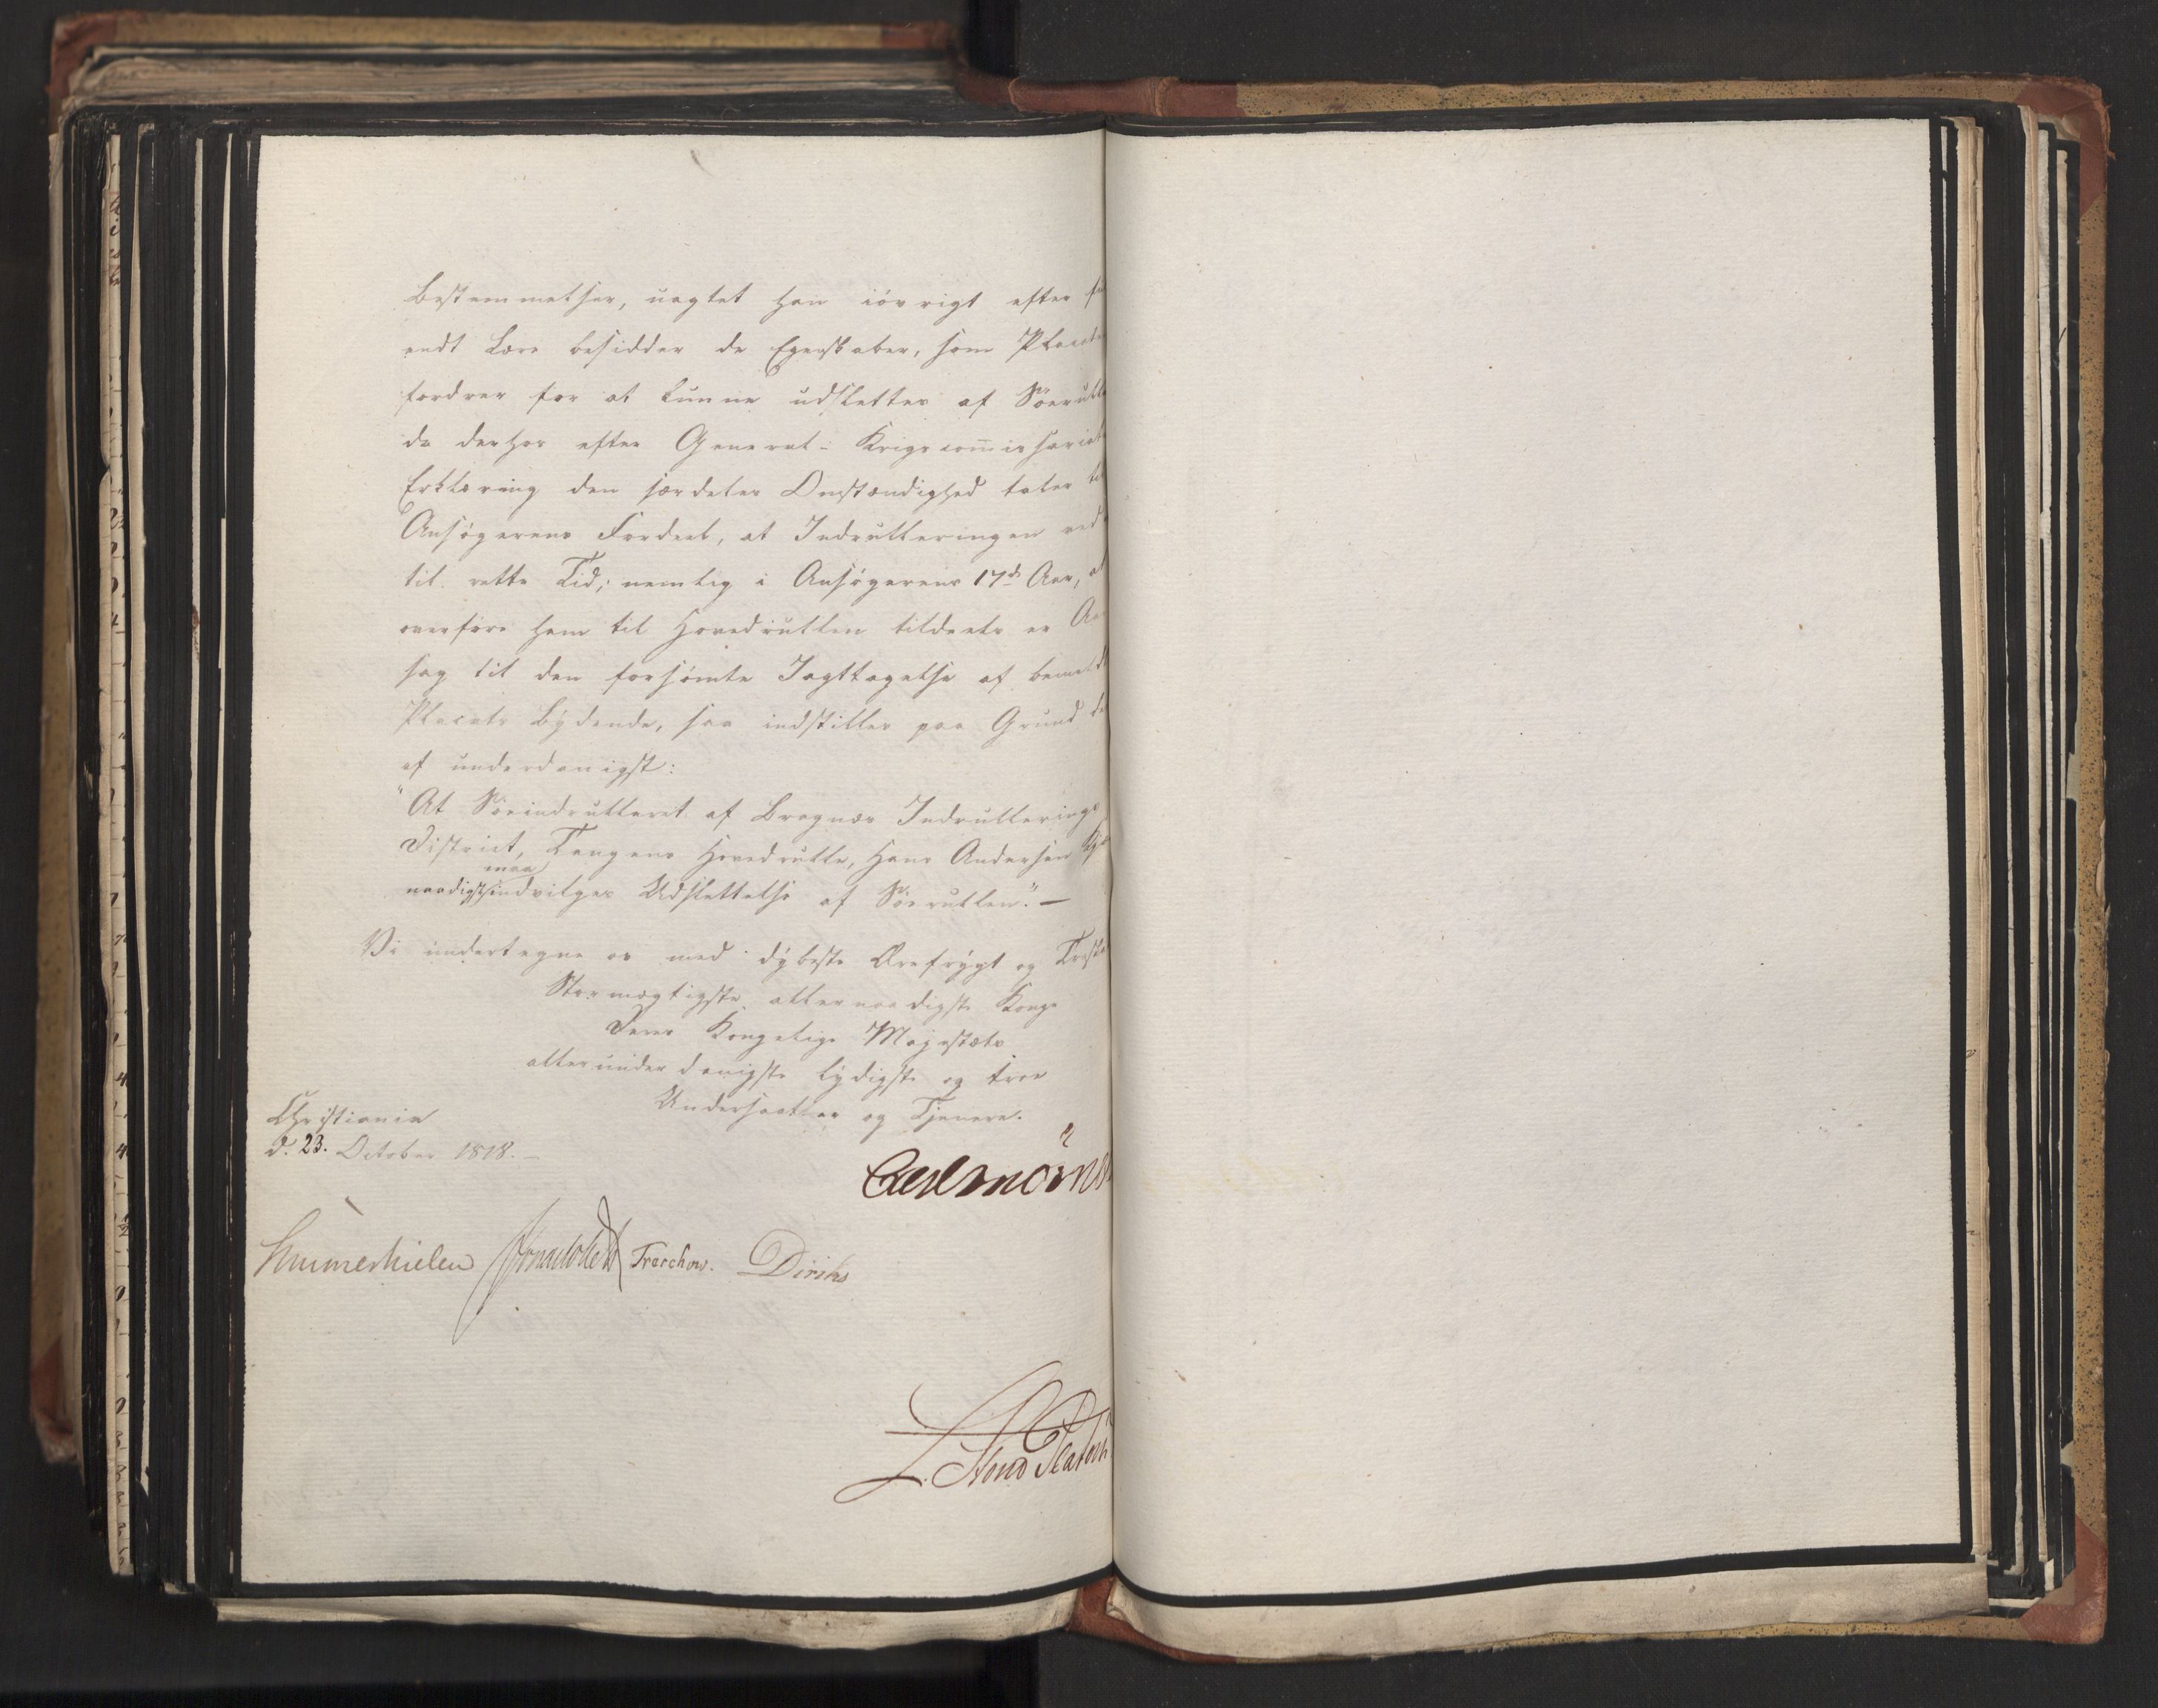 Bestemmelser, uagtet han iövrigt efter
endt Lære besidder de Egenskaber, som Placaten
fordrer for at kunne udslettes af Söerullen
da derhos efter General-Krigscom̅issariatets
Erklæring den særdeles Omstændighed taler til
Ansøgerens Fordeel, at Indrulleringen ved
til rette Tid, nemlig i Ansøgerens 17de Aar, at
overføre ham til Hovedrullen tildeels er Aar
sag til den forsömte Iagttagelse af bemeldte
Placats Bydende, saa indstilles paa Grund
af underdanigst:
"At Söeindrulleret af Bragnæs Indrullerings
District, Tangens Hovedrulle, Hans Andersen
maa
naadigst indvilges Udslettelse af Söerullen." —
Vi undertegne os med dybeste Ærefrygt og Troskab
Stormægtigste allernaadigste Konge
Deres Kongelige Majestæts
allerunderdanigste lydigste og troe
Undersaatter og Tjenere.
Christiania
d. 23. October 1818. —
CarlMörner
Hummerhielm Treschow. Diriks
L. Stoud Platou